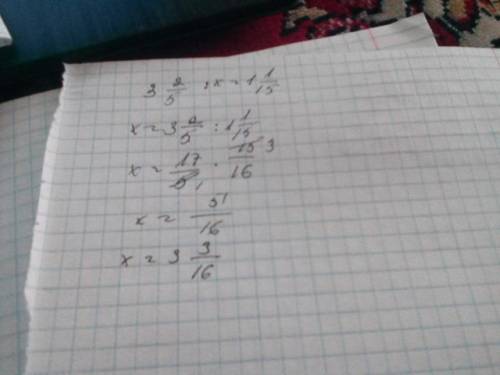 3 2/5 : x = 1 1/15
x = 3 2/5 : 1 1/15
x = 17/5 1 · 15 3/16
x = 51/16
x = 3 3/16